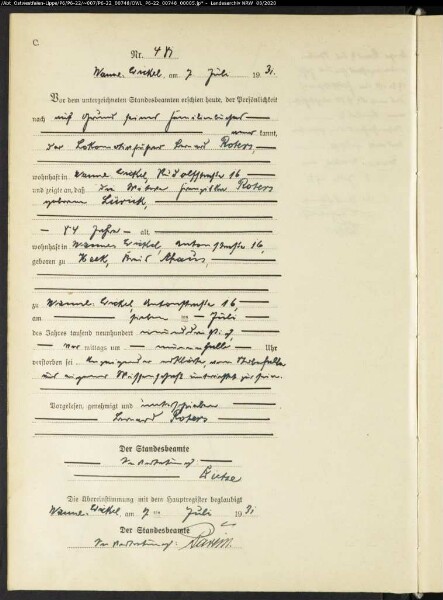 /Abt_Ostwestfalen-Lippe/P6/P6-22/~007/P6-22_00748/OWL_P6-22_00748_00005.jp* - Landesarchiv NRW 03/2020
C
Nr.
Wanne-Eickel, am 7 Juli 1931.
Vor dem unterzeichneten Standesbeamten erschien heute, der Persönlichkeit
nach auf Grund seines Familienbuches
kannt,
der Lokomotivführer Bernard Roters,
wohnhaft in Wanne-Eickel, 16
und zeigte an, daß die Witwe Franziska Roters
geborene
Jahre alt,
wohnhaft in Wanne-Eickel, 16,
geboren zu Heek, Kreis Ahaus,
zu Wanne-Eickel, 16,
am sieben ten Juli
des Jahres tausend neunhundert einunddreißig,
vor mittags um Uhr
verstorben sei. Anzeigender erklärte, vom Sterbefalle
aus eigener Wissenschaft unterrichtet zu sein.
Vorgelesen, genehmigt und unterschrieben
Bernard Roters
Der Standesbeamte
In Vertretung:
Die Übereinstimmung mit dem Hauptregister beglaubigt
Wanne-Eickel, am 7 ten Juli 1931
Der Standesbeamte
In Vertretung: